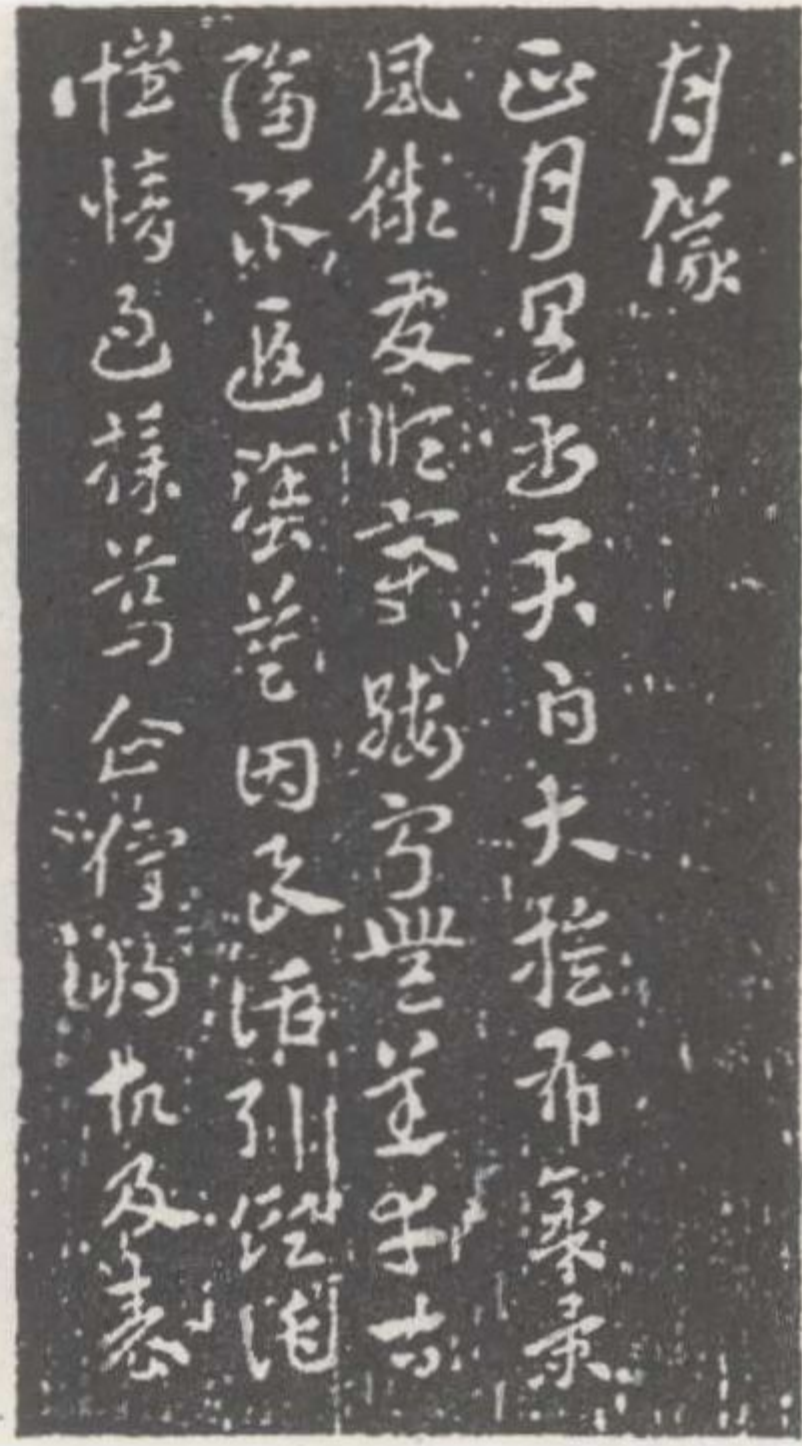 月儀
正月具書君白大蔟布氣景
風微發順變綏寧無恙幸甚
隔限遐塗莫因良話引領託
懷情過採葛企佇及表